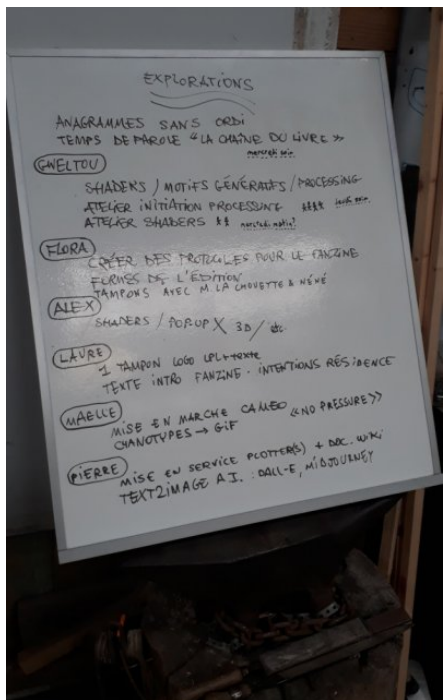 EXPLORATIONS
ANAGRAMMES SANS ORDI
TEMPS DE PAROLE "LA CHAÎNE DU LIVRE"
mercredi soir
GWELTOU
SHADERS / MOTIFS GÉNÉRATIFS / PROCESSING
ATELIER INITIATION PROCESSING **** jeudi soir
ATELIER SHADERS ** mercredi matin?
FLORA
CRÉER DES PROTOCOLES POUR LE FANZINE
FORMES DE L'ÉDITION
TAMPONS AVEC M LA CHOUETTE & NÉNÉ
ALEX
SHADERS / POP-UP X 3D / etc
LAURE
1 TAMPON LOGO LPL + texte
TEXTE INTRO FANZINE. INTENTIONS RÉSIDENCE
MAELLE
MISE EN MARCHE CAMEO «NO PRESSURE»
CYANOTYPES → GIF
PIERRE
MISE EN SERVICE PLOTTER(S) + DOC. WIKI
TEXT2IMAGE A.I. : DALL-E, MIDJOURNEY